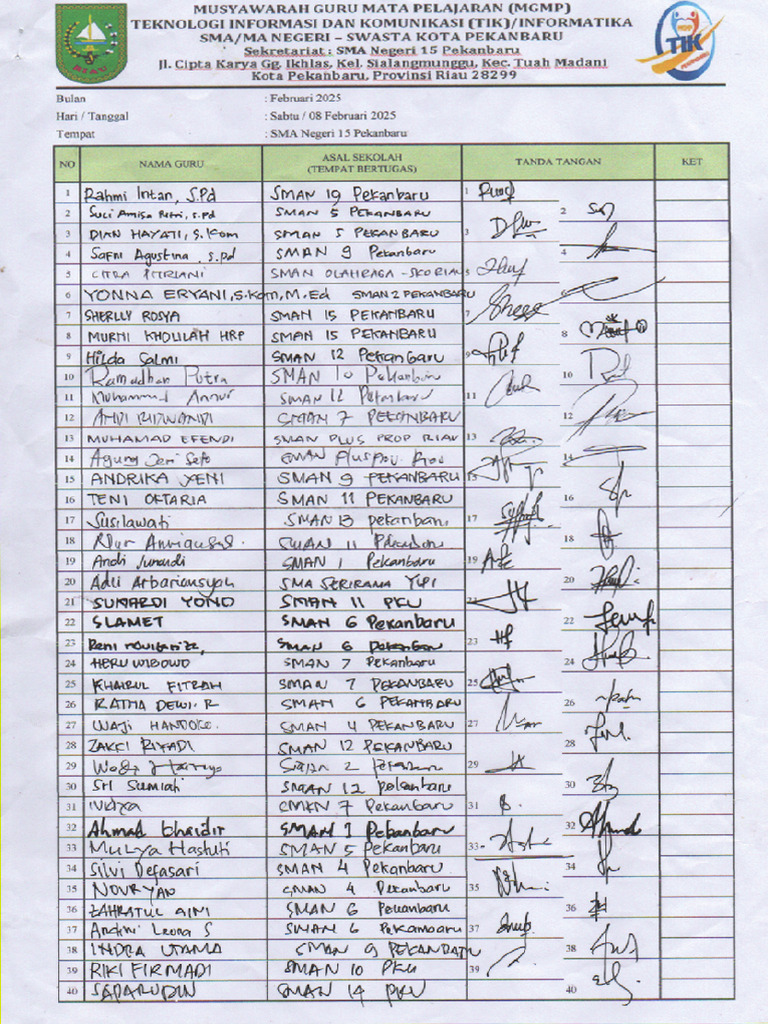 MUSYAWARAH GURU MATA PELAJARAN (MGMP)
TEKNOLOGI INFORMASI DAN KOMUNIKASI (TIK)/INFORMATIKA
SMA/MA NEGERI – SWASTA KOTA PEKANBARU
Sekretariat : SMA Negeri 15 Pekanbaru
Jl. Cipta Karya Gg. Ikhlas, Kel. Sialangmunggu, Kec. Tuah Madani
Kota Pekanbaru, Provinsi Riau 28299
RIAU
TIK
Bulan : Februari 2025
Hari / Tanggal : Sabtu / 08 Februari 2025
Tempat : SMA Negeri 15 Pekanbaru
NO NAMA GURU ASAL SEKOLAH (TEMPAT BERTUGAS) TANDA TANGAN KET
1 Rahmi Intan, S.Pd SMAN 19 Pekanbaru 1
2 Suci S.Pd SMAN 5 PEKANBARU 2
3 DIAN HAYATI, S.Kom SMAN 5 PEKANBARU 3
4 Safni Agustina, S.pd SMAN 9 Pekanbaru 4
5 CITRA FITRIANI SMAN OLAHRAGA 5
6 YONNA ERYANI, S.Kom, M.Ed SMAN 2 PEKANBARU 6
7 SHERLLY ROSYA SMAN 15 PEKANBARU 7
8 MURNI KHOLILAH HRP SMAN 15 PEKANBARU 8
9 Hilda Salmi SMAN 12 Pekanbaru 9
10 Ramadhan Putra SMAN 10 Pekanbaru 10
11 Muhammad SMAN 12 Pekanbaru 11
12 RIDWANDI SMAN 7 PEKANBARU 12
13 MUHAMAD EFENDI SMAN PLUS PROP RIAU 13
14 Agung SMAN Plus Riau 14
15 ANDRIKA YENI SMAN 9 PEKANBARU 15
16 TENI OKTARIA SMAN 11 PEKANBARU 16
17 Susilawati SMAN 13 pekanbaru 17
18 SMAN 11 Pekanbaru 18
19 Andi Junaidi SMAN 1 Pekanbaru 19
20 Adli Arbariansyah SMA SERIRAMA YLPI 20
21 SUNARDI YONO SMAN 11 PKU 21
22 SLAMET SMAN 6 Pekanbaru 22
23 Reni SMAN 6 Pekanbaru 23
24 HERU WIBOWO SMAN 7 Pekanbaru 24
25 KHAIRUL FITRAH SMAN 7 PEKANBARU 25
26 RATNA DEWI. R SMAN 6 PEKANBARU 26
27 WAJI HANDOKO. SMAN 4 PEKANBARU 27
28 ZAKCI RIYADI SMAN 12 PEKANBARU 28
29 SMAN 2 Pekanbaru 29
30 Sri Sumiati SMAAN 12 pekanbaru 30
31 SMAN 7 Pekanbaru 31
32 Ahmad Khaidir SMAN 1 Pekanbaru 32
33 Mulya Hastuti SMAN 5 Pekanbaru 33
34 Silvi Defasari SMAN 4 Pekanbaru. 34
35 NOURYAN SMAN 4 Pekanbaru 35
36 ZAHRATUL AINI SMAN 6 Pekanbaru 36
37 Andini Leona S SMAN 6 Pekanbaru 37
38 INDRA UTAMA SMAN 9 PEKANBARU 38
39 RIKI FIRMADI SMAN 10 PKU 39
40 SAPARUDIN SMAN 14 PKU 40